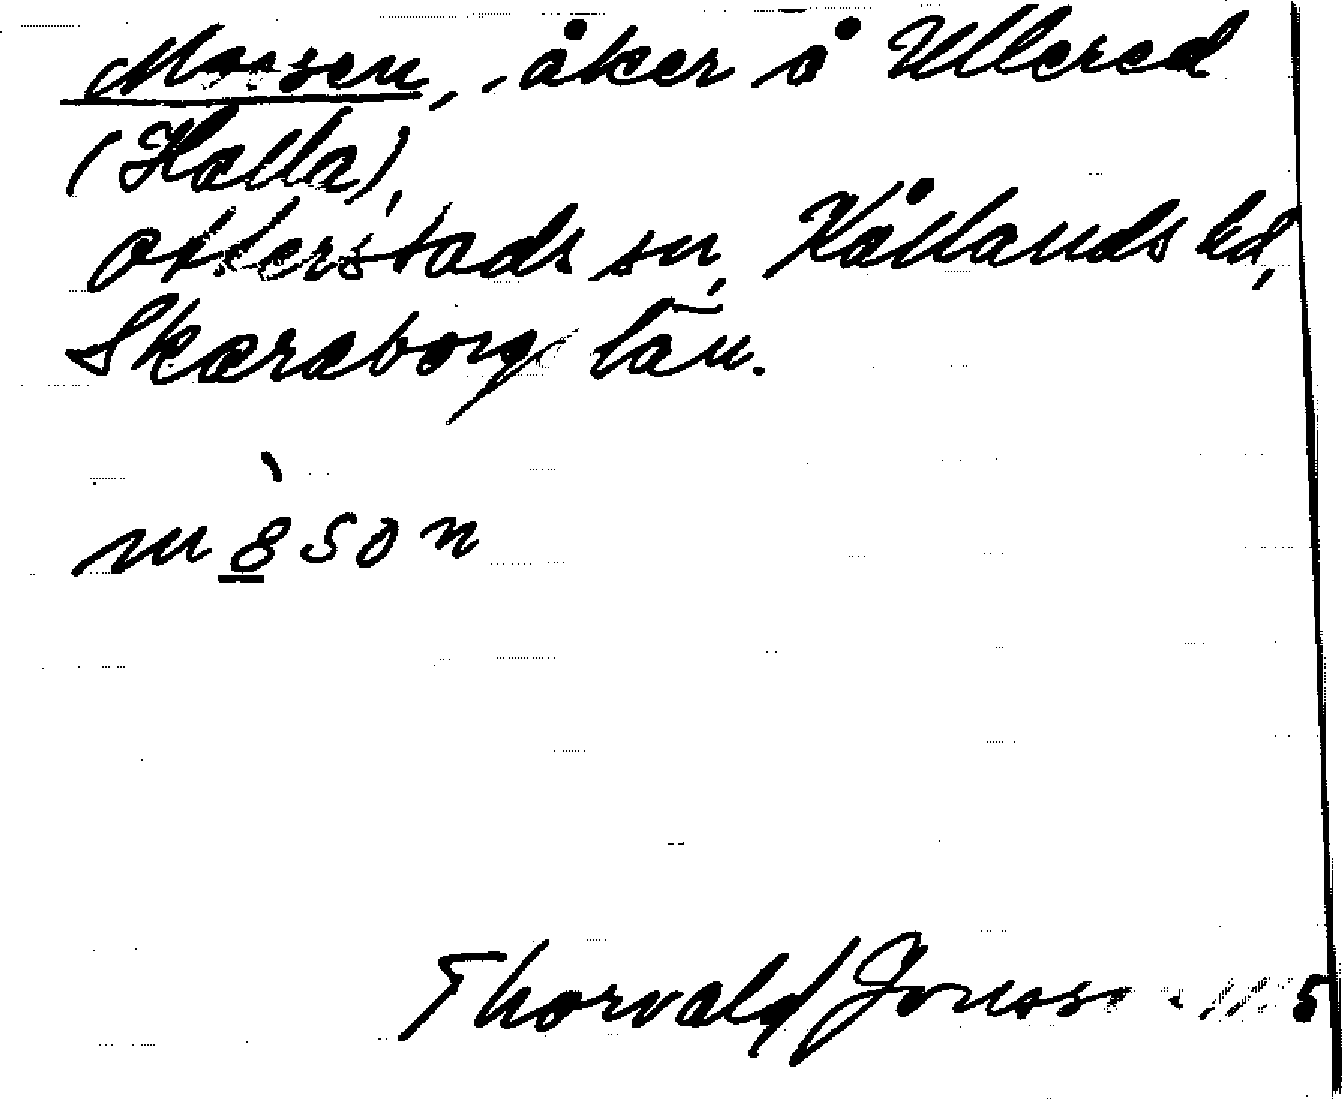 Mossen, åker å Ullered
(Halla),
Otterstads sn, Kållands hd,
Skaraborg län.
m8̲̀son
Thorvald Jonsson